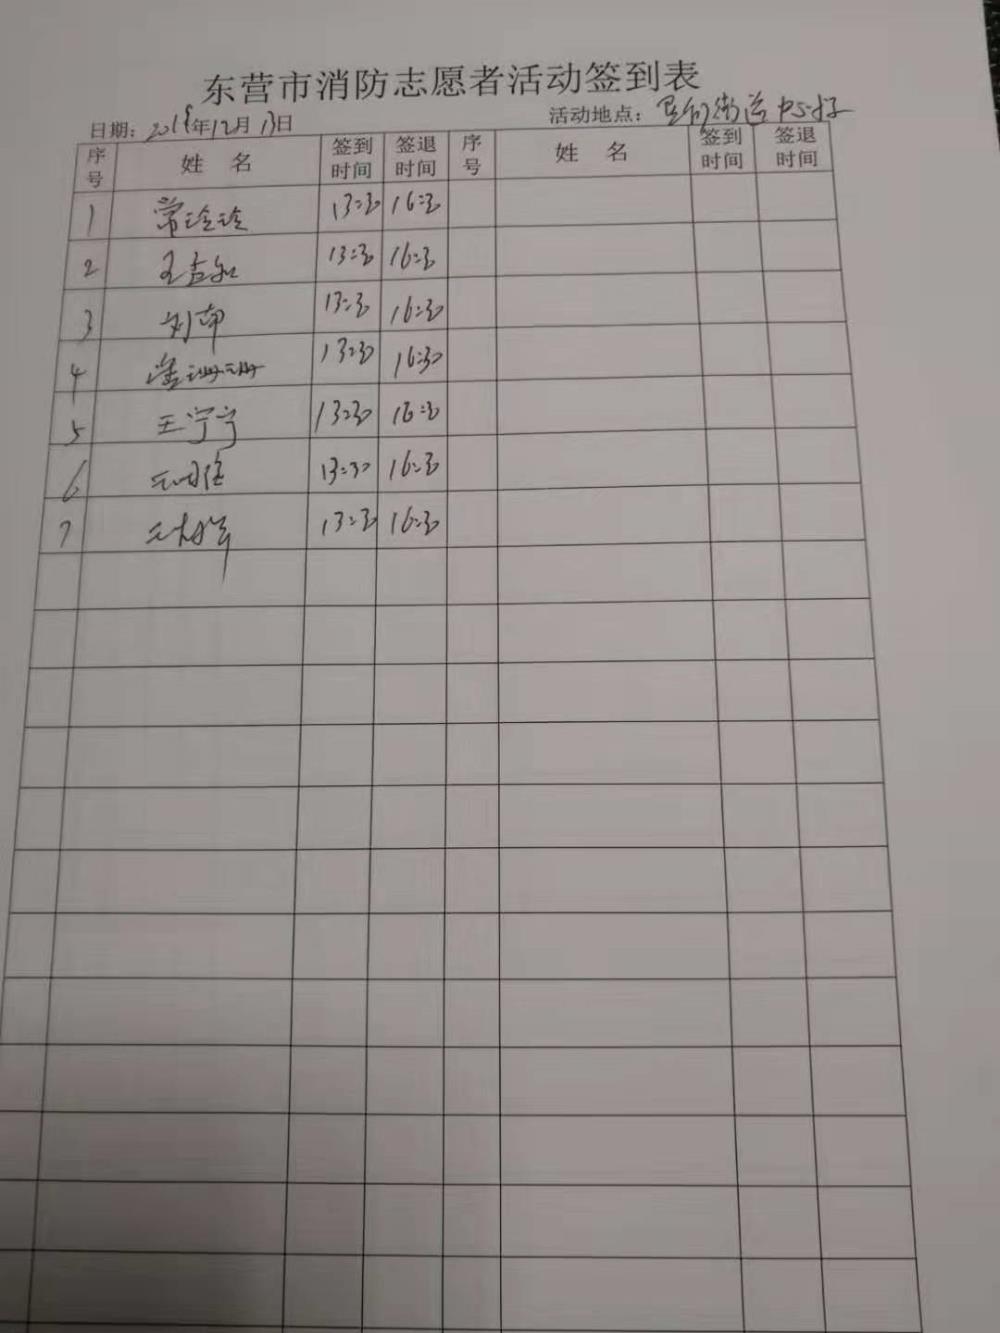 东营市消防志愿者活动签到表
日期: 2019年12月13日 活动地点: 街道中心
序号 姓名 签到时间 签退时间 序号 姓名 签到时间 签退时间
1 常玲玲 13:30 16:30
2 13:30 16:30
3 13:30 16:30
4 13:30 16:30
5 王宁宁 13:30 16:30
6 13:30 16:30
7 13:30 16:30